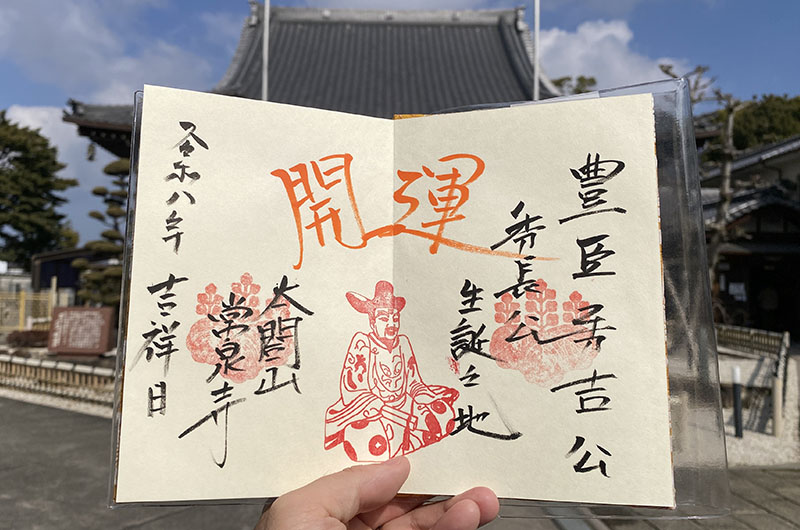 豊臣秀吉公
秀長公
生誕之地
開運
太閤山
常泉寺
令和八年
吉祥日